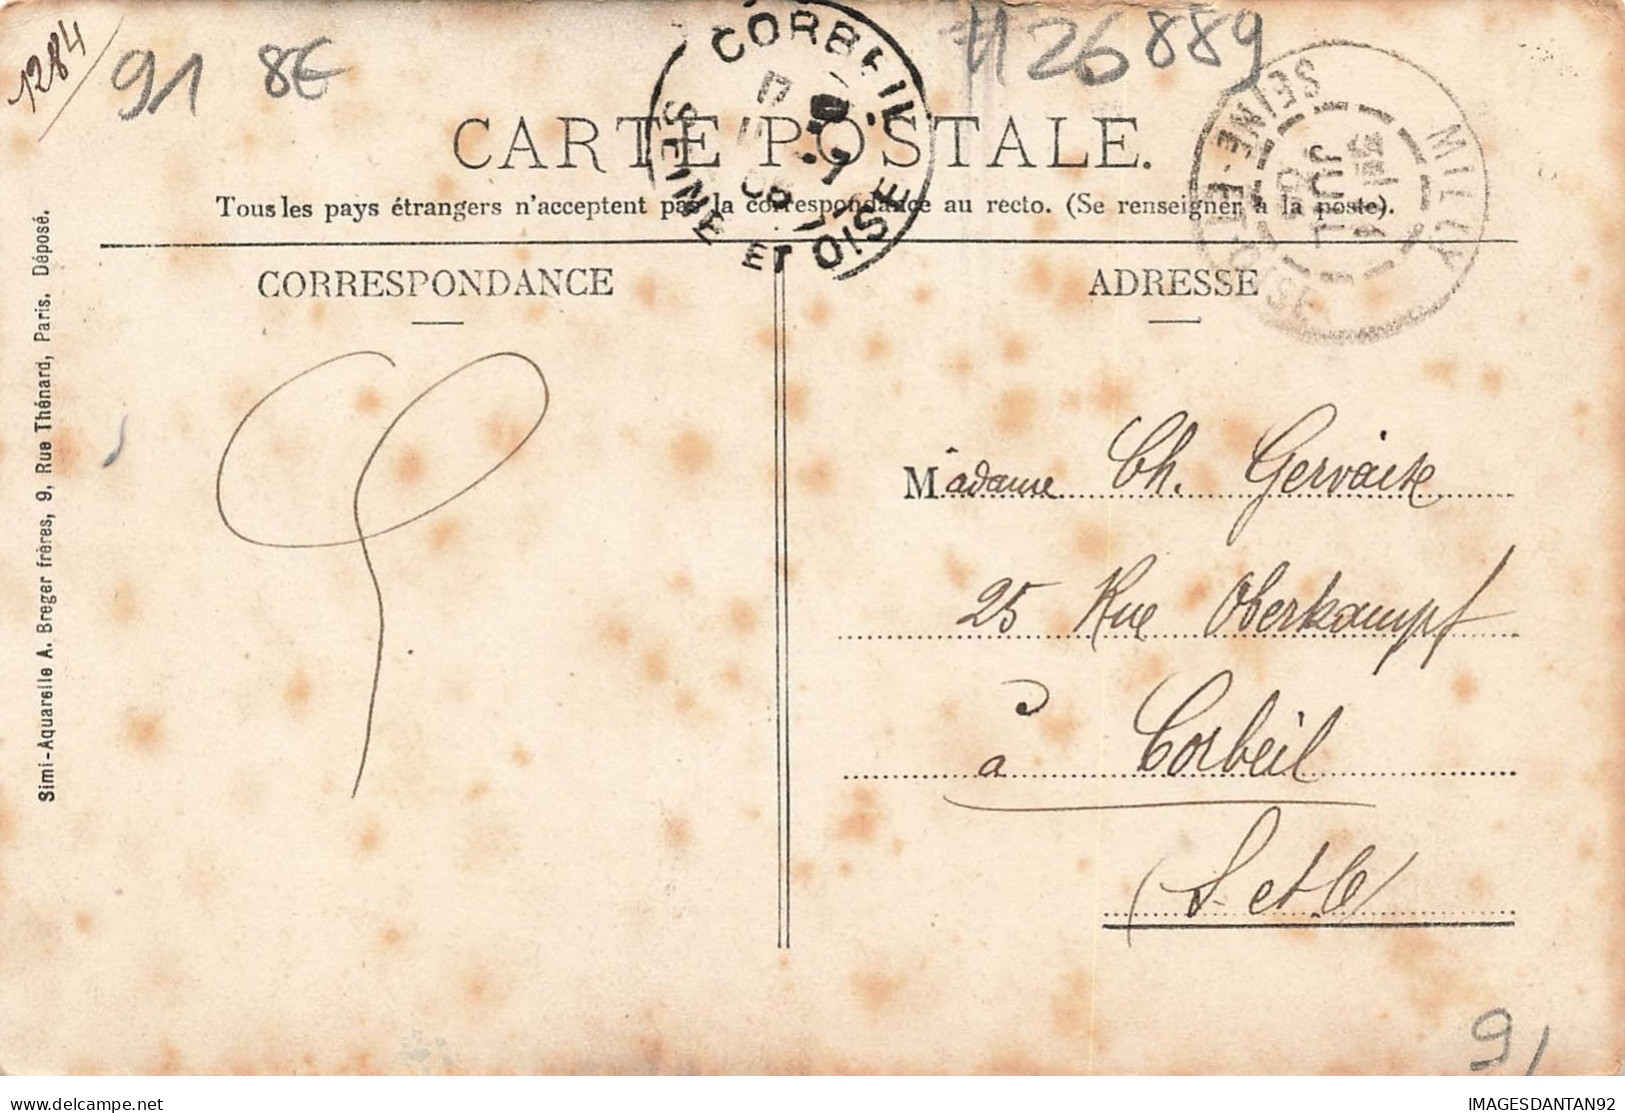 1284/
91 8€
#26889
CORBEIL
SEINE ET OISE
MILLY
SEINE-ET-OISE
CARTE POSTALE.
Tous les pays étrangers n'acceptent pas la correspondance au recto. (Se renseigner à la poste).
CORRESPONDANCE
ADRESSE
Simi-Aquarelle A. Breger frères, 9, Rue Thénard, Paris. Déposé.
Madame Ch. Gervaise
25 Rue Oberkampf
à Corbeil
(S. et O)
91
delcampe.net
IMAGESDANTAN92